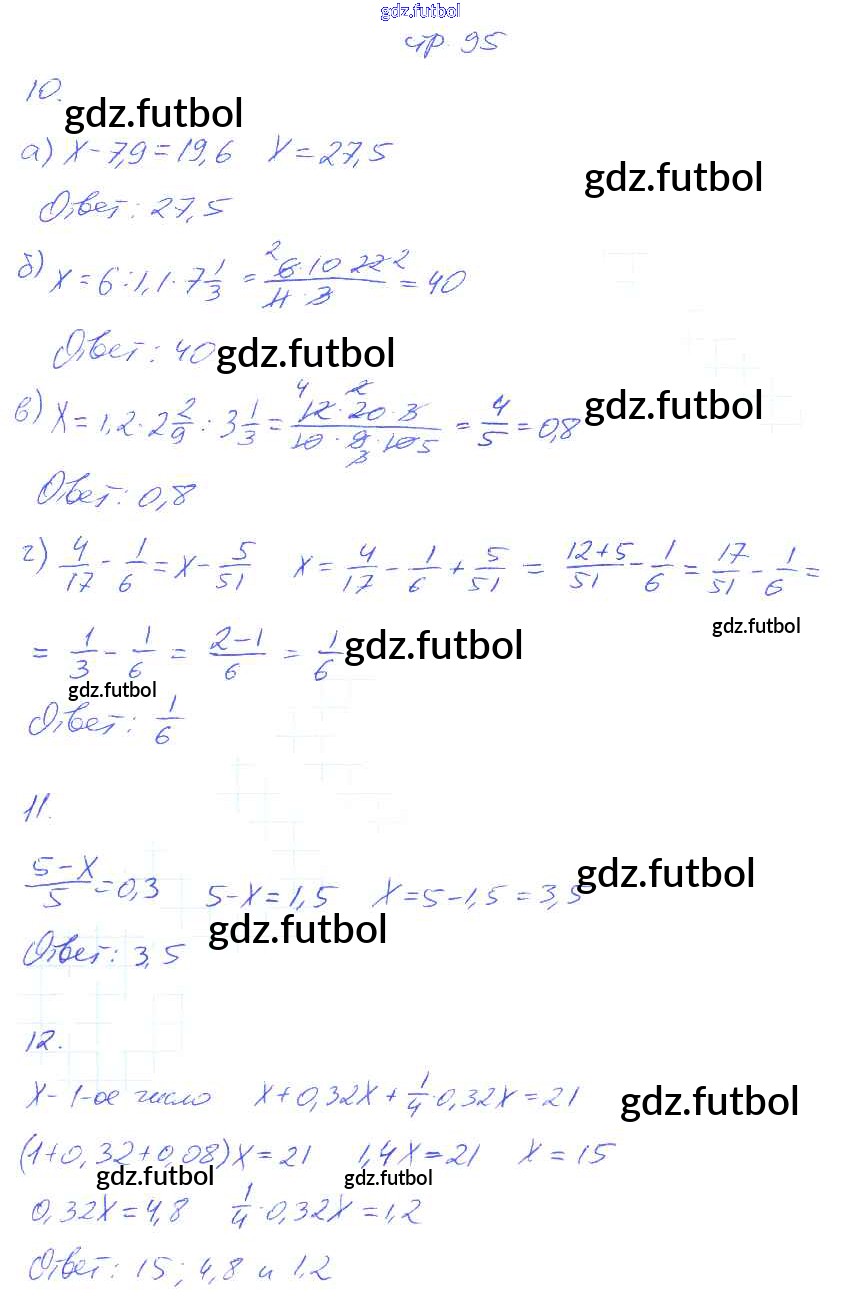 gdz.futbol
стр. 95
10.
gdz.futbol
а) x - 7,9 = 19,6 x = 27,5
gdz.futbol
Ответ: 27,5
б) x = 6 : 1,1 · 7 1/3 = 2 6 · 10 · 22 2 / 11 · 3 = 40
Ответ: 40
gdz.futbol
в) x = 1,2 · 2 2/9 : 3 1/3 = 4 12 · 20 2 · 3 / 10 · 9 3 · 10 5 = 4/5 = 0,8
gdz.futbol
Ответ: 0,8
г) 4/17 - 1/6 = x - 5/51 x = 4/17 - 1/6 + 5/51 = 12+5/51 - 1/6 = 17/51 - 1/6 =
gdz.futbol
= 1/3 - 1/6 = 2-1/6 = 1/6
gdz.futbol
gdz.futbol
Ответ: 1/6
11.
5-x/5 = 0,3 5-x = 1,5 x = 5-1,5 = 3,5
gdz.futbol
gdz.futbol
Ответ: 3,5
12.
x - 1-ое число x + 0,32x + 1/4 · 0,32x = 21
gdz.futbol
(1+0,32+0,08)x = 21 1,4x = 21 x = 15
gdz.futbol
gdz.futbol
0,32x = 4,8 1/4 · 0,32x = 1,2
Ответ: 15; 4,8 и 1,2